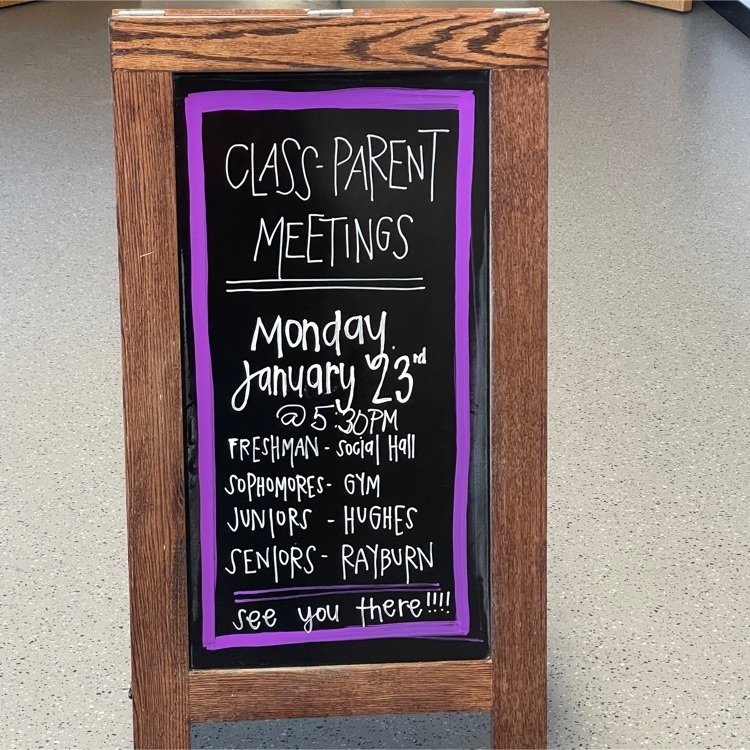 CLASS-PARENT
MEETINGS
Monday
January 23rd
@ 5:30PM
FRESHMAN - Social Hall
SOPHOMORES - GYM
JUNIORS - HUGHES
SENIORS - RAYBURN
see you there!!!!